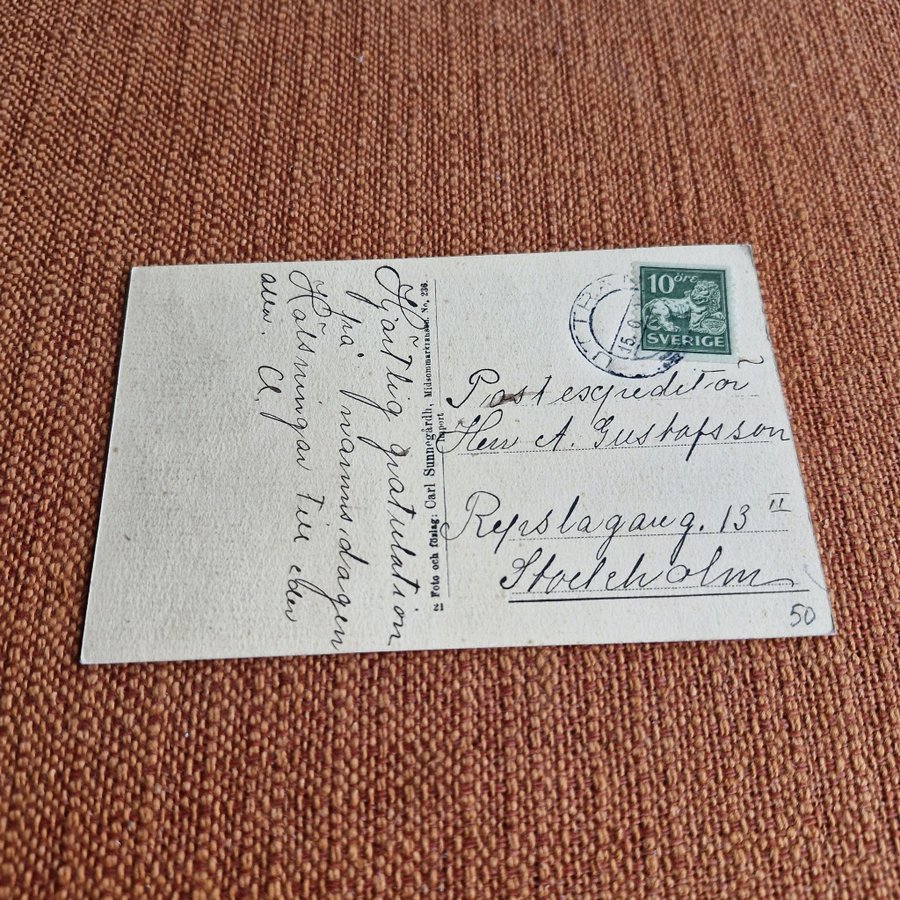 Hjärtlig gratulation
på namnsdagen
Hälsningar till eder
allu. A.
Foto och föslag: Carl Sunnegårdh, Midsommarkransen. No, 236.
Import
10 öre
SVERIGE
15.
Postexpeditör
Herr A. Gustafsson
Repslagaug. 13 II
Stockholm
50